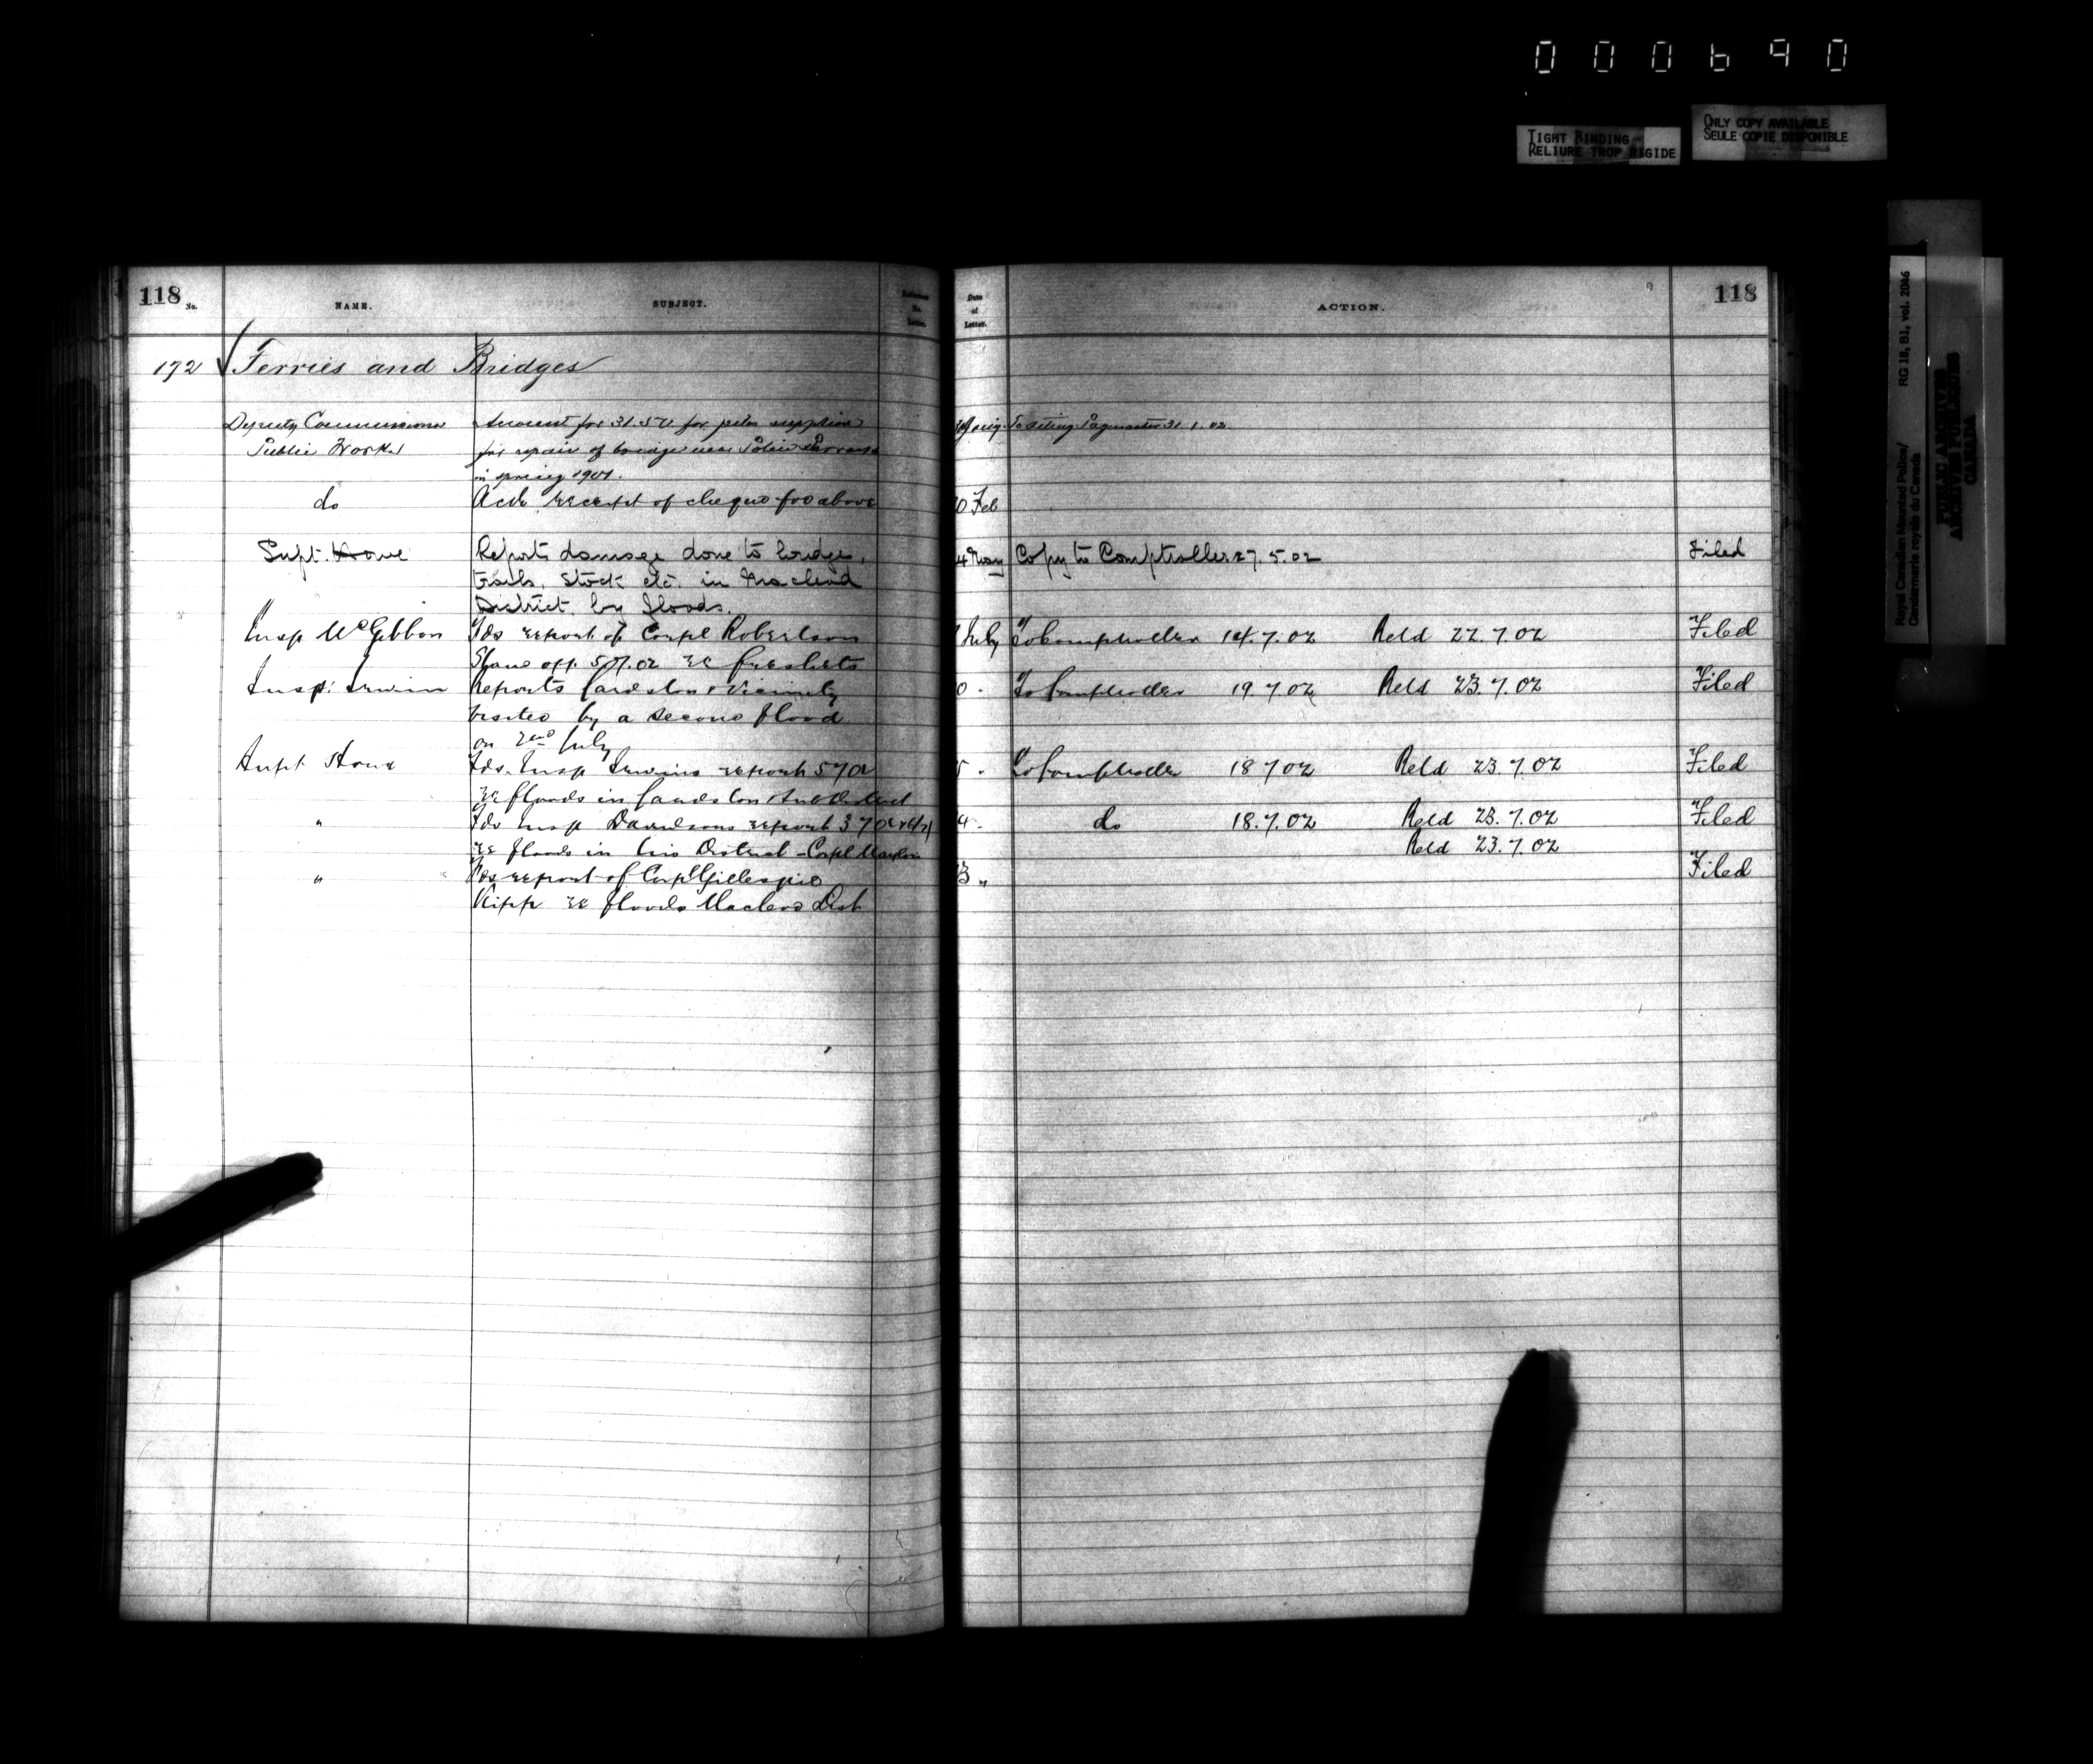 000690
TIGHT BINDING
RELIURE TROP RIGIDE
ONLY COPY AVAILABLE
SEULE COPIE DISPONIBLE
Royal Canadian Mounted Police/
Gendarmerie royale du Canada
RG 18, B1, vol. 2046
PUBLIC ARCHIVES
ARCHIVES PUBLIQUES
CANADA
118 No. NAME. SUBJECT. Reference No. Letter.
Date of Letter. ACTION. 118
172 Ferries and Bridges
Deputy Commissioner Account for 31.50 for piles supplied
Public Works for repair of bridge near Police Barracks
in spring 1901.
Paymaster 31.1.02
do Ack receipt of cheque for above
0 Feb
Supt. Howe Reports damage done to bridges,
4 May Copy to Comptroller 27.5.02 Filed
trails, stock etc. in Macleod
District, by floods.
Insp McGibbon Fds report of Corpl Robertson
July To Comptroller 14.7.02 Retd 22.7.02 Filed
5.7.02 re freshets
Insp. Irwin Reports Cardston & Vicinity
0 " To Comptroller 19.7.02 Retd 23.7.02 Filed
visited by a second flood
on 2nd July
Supt Howe Fds. Insp Irwins report 5702
5 " To Comptroller 18702 Retd 23.7.02 Filed
re floods in Cardston Sub District
" Fds Insp Davidsons report 3702
4 " do 18.7.02 Retd 23.7.02 Filed
re floods in his District - Corpl
Retd 23.7.02
" Fds report of Corpl Gillespie
3 " Filed
Kipp re floods Macleod Dist